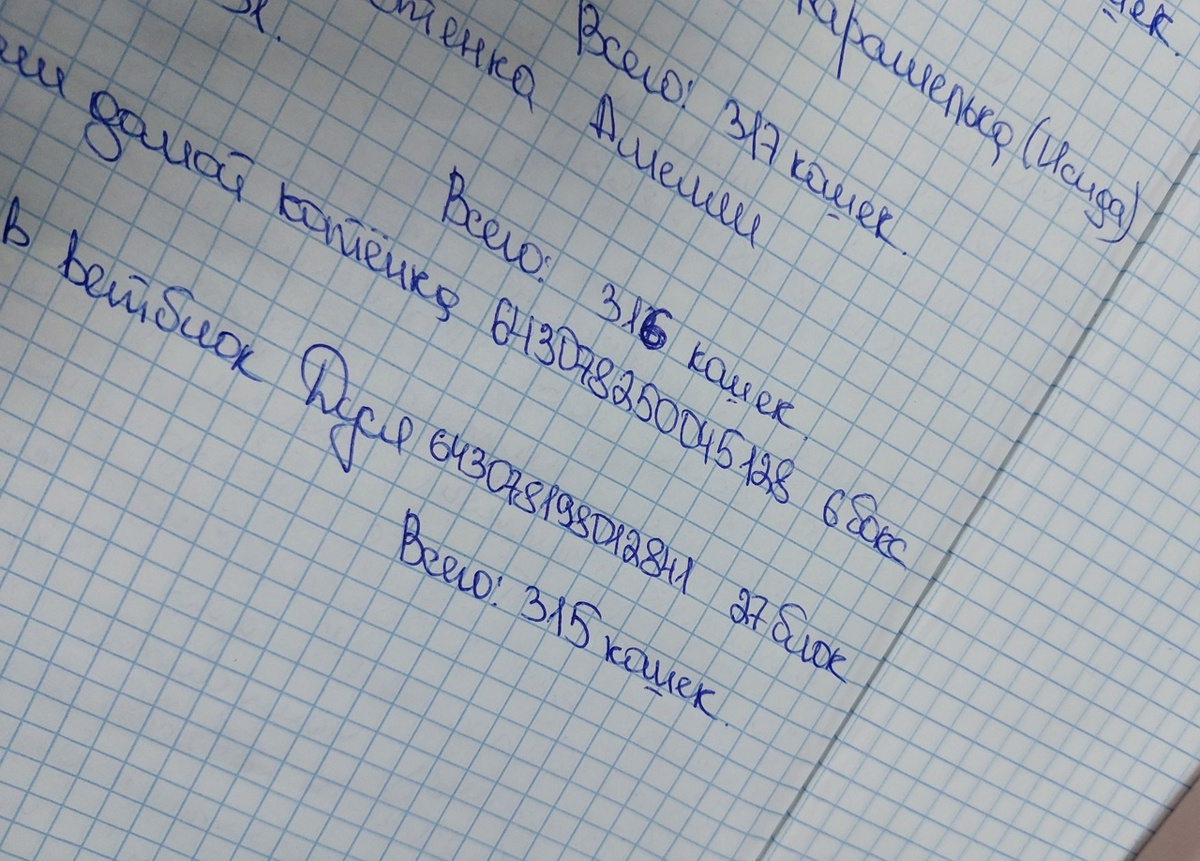 Карамелька (Исида)
Всего: 317 кошек.
Амелии
Всего: 316 кошек.
домой котёнка 643078250045128 6 бокс
в ветблок Дуся 643078198012841 27 блок
Всего: 315 кошек.